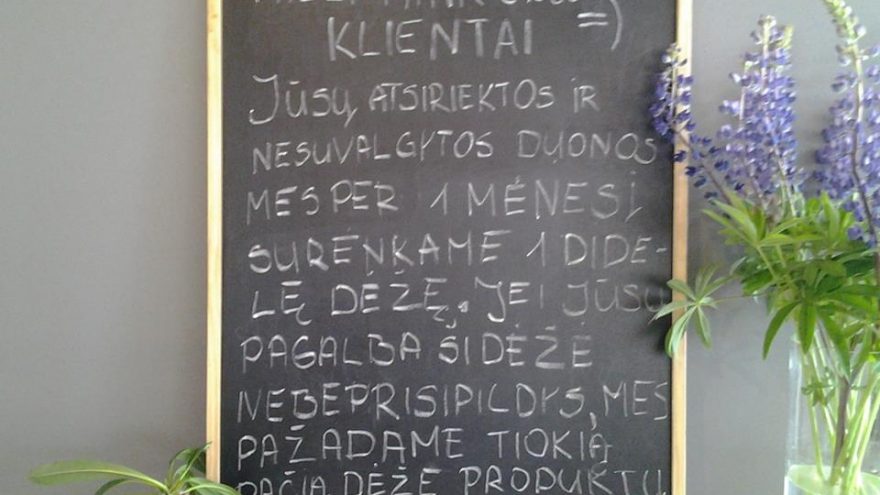 KLIENTAI =)
JŪSŲ ATSIRIEKTOS IR
NESUVALGYTOS DUONOS
MES PER 1 MĖNESĮ
SURENKAME 1 DIDE-
LĘ DĖŽĘ. JEI JŪSŲ
PAGALBA ŠI DĖŽĖ
NEBEPRISIPILDYS, MES
PAŽADAME TIOKIĄ
PAČIĄ DĖŽĘ PRODUKTŲ